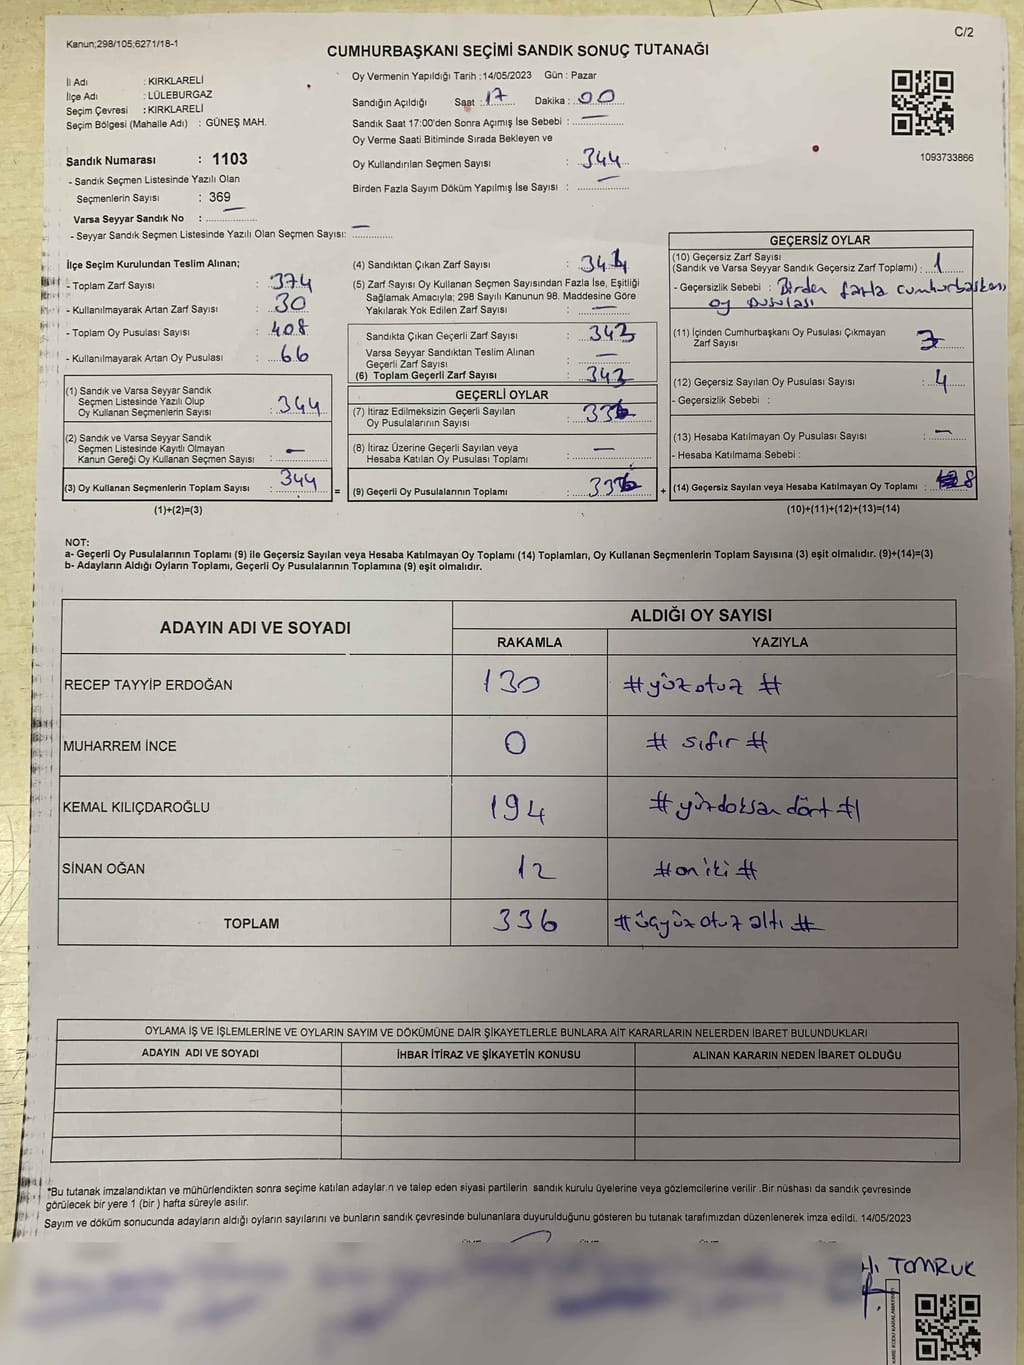 Kanun;298/105;6271/18-1
C/2
CUMHURBAŞKANI SEÇİMİ SANDIK SONUÇ TUTANAĞI
İl Adı : KIRKLARELİ
İlçe Adı : LÜLEBURGAZ
Seçim Çevresi : KIRKLARELİ
Seçim Bölgesi (Mahalle Adı) : GÜNEŞ MAH.
Sandık Numarası : 1103
- Sandık Seçmen Listesinde Yazılı Olan
Seçmenlerin Sayısı : 369
Varsa Seyyar Sandık No : —
- Seyyar Sandık Seçmen Listesinde Yazılı Olan Seçmen Sayısı: —
Oy Vermenin Yapıldığı Tarih :14/05/2023 Gün : Pazar
Sandığın Açıldığı Saat : 17 Dakika : 00
Sandık Saat 17:00'den Sonra Açımış İse Sebebi : —
Oy Verme Saati Bitiminde Sırada Bekleyen ve
Oy Kullandırılan Seçmen Sayısı : 344
Birden Fazla Sayım Döküm Yapılmış İse Sayısı : —
1093733866
İlçe Seçim Kurulundan Teslim Alınan;
- Toplam Zarf Sayısı : 374
- Kullanılmayarak Artan Zarf Sayısı : 30
- Toplam Oy Pusulası Sayısı : 408
- Kullanılmayarak Artan Oy Pusulası : 66
(1) Sandık ve Varsa Seyyar Sandık
Seçmen Listesinde Yazılı Olup
Oy Kullanan Seçmenlerin Sayısı : 344
(2) Sandık ve Varsa Seyyar Sandık
Seçmen Listesinde Kayıtlı Olmayan
Kanun Gereği Oy Kullanan Seçmen Sayısı : —
(3) Oy Kullanan Seçmenlerin Toplam Sayısı : 344
(1)+(2)=(3)
(4) Sandıktan Çıkan Zarf Sayısı : 344
(5) Zarf Sayısı Oy Kullanan Seçmen Sayısından Fazla İse, Eşitliği
Sağlamak Amacıyla; 298 Sayılı Kanunun 98. Maddesine Göre
Yakılarak Yok Edilen Zarf Sayısı : —
Sandıkta Çıkan Geçerli Zarf Sayısı : 343
Varsa Seyyar Sandıktan Teslim Alınan
Geçerli Zarf Sayısı : —
(6) Toplam Geçerli Zarf Sayısı : 343
GEÇERLİ OYLAR
(7) İtiraz Edilmeksizin Geçerli Sayılan
Oy Pusulalarının Sayısı : 336
(8) İtiraz Üzerine Geçerli Sayılan veya
Hesaba Katılan Oy Pusulası Toplamı : —
= (9) Geçerli Oy Pusulalarının Toplamı : 336 +
GEÇERSİZ OYLAR
(10) Geçersiz Zarf Sayısı
(Sandık ve Varsa Seyyar Sandık Geçersiz Zarf Toplamı) : 1
- Geçersizlik Sebebi : Birden fazla cumhurbaşkanı
oy pusulası
(11) İçinden Cumhurbaşkanı Oy Pusulası Çıkmayan
Zarf Sayısı : 3
(12) Geçersiz Sayılan Oy Pusulası Sayısı : 4
- Geçersizlik Sebebi :
(13) Hesaba Katılmayan Oy Pusulası Sayısı : —
- Hesaba Katılmama Sebebi :
(14) Geçersiz Sayılan veya Hesaba Katılmayan Oy Toplamı : 8
(10)+(11)+(12)+(13)=(14)
NOT:
a- Geçerli Oy Pusulalarının Toplamı (9) ile Geçersiz Sayılan veya Hesaba Katılmayan Oy Toplamı (14) Toplamları, Oy Kullanan Seçmenlerin Toplam Sayısına (3) eşit olmalıdır. (9)+(14)=(3)
b- Adayların Aldığı Oyların Toplamı, Geçerli Oy Pusulalarının Toplamına (9) eşit olmalıdır.
ADAYIN ADI VE SOYADI ALDIĞI OY SAYISI
RAKAMLA YAZIYLA
RECEP TAYYİP ERDOĞAN 130 #yüzotuz #
MUHARREM İNCE 0 # sıfır #
KEMAL KILIÇDAROĞLU 194 #yüzdoksan dört #
SİNAN OĞAN 12 #on iki #
TOPLAM 336 #üçyüz otuz altı #
OYLAMA İŞ VE İŞLEMLERİNE VE OYLARIN SAYIM VE DÖKÜMÜNE DAİR ŞİKAYETLERLE BUNLARA AİT KARARLARIN NELERDEN İBARET BULUNDUKLARI
ADAYIN ADI VE SOYADI İHBAR İTİRAZ VE ŞİKAYETİN KONUSU ALINAN KARARIN NEDEN İBARET OLDUĞU
*Bu tutanak imzalandıktan ve mühürlendikten sonra seçime katılan adayların ve talep eden siyasi partilerin sandık kurulu üyelerine veya gözlemcilerine verilir .Bir nüshası da sandık çevresinde
görülecek bir yere 1 (bir ) hafta süreyle asılır.
Sayım ve döküm sonucunda adayların aldığı oyların sayılarını ve bunların sandık çevresinde bulunanlara duyurulduğunu gösteren bu tutanak tarafımızdan düzenlenerek imza edildi. 14/05/2023
TOMRUK